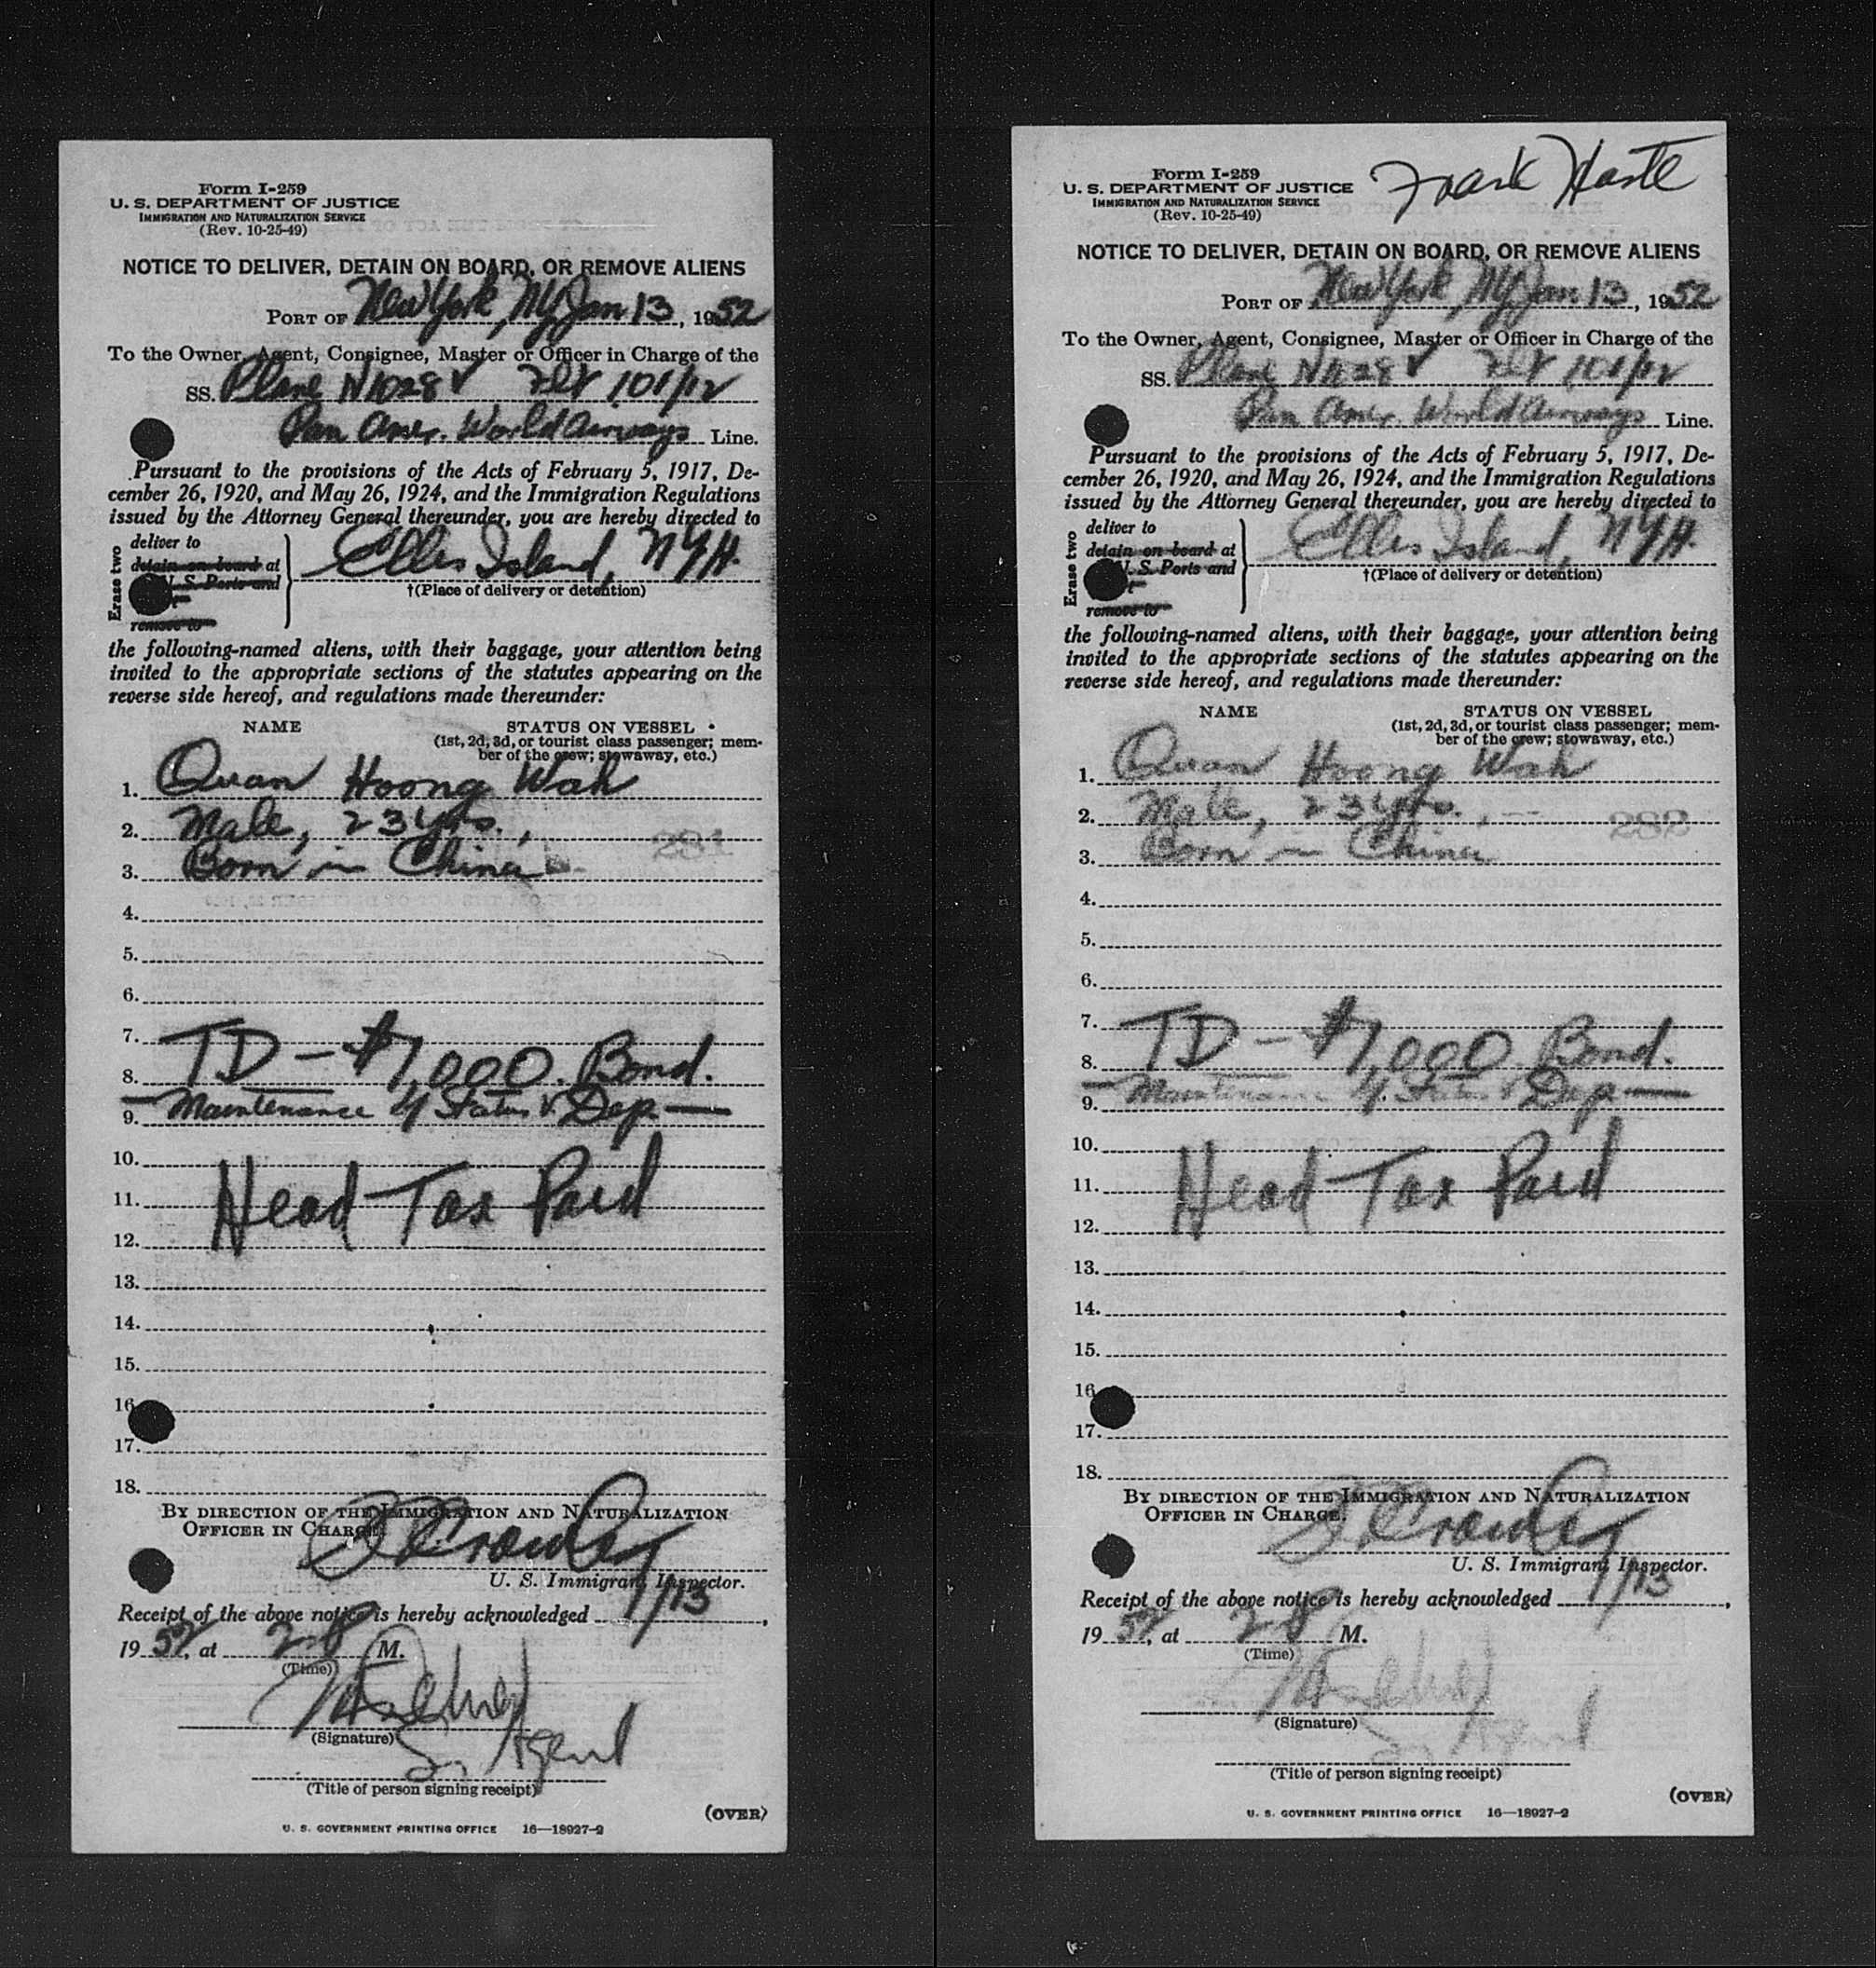 Form I-259
U. S. DEPARTMENT OF JUSTICE
IMMIGRATION AND NATURALIZATION SERVICE
(Rev. 10-25-49)
NOTICE TO DELIVER, DETAIN ON BOARD, OR REMOVE ALIENS
PORT OF New York, NY Jan 13, 1952
To the Owner, Agent, Consignee, Master or Officer in Charge of the
SS. Plane N1028V Flt 101/12
Pan Amer. World Airways Line.
Pursuant to the provisions of the Acts of February 5, 1917, De-
cember 26, 1920, and May 26, 1924, and the Immigration Regulations
issued by the Attorney General thereunder, you are hereby directed to
Erase two
deliver to
detain on board at
U. S. Ports and
remove to
Ellis Island, NYH.
†(Place of delivery or detention)
the following-named aliens, with their baggage, your attention being
invited to the appropriate sections of the statutes appearing on the
reverse side hereof, and regulations made thereunder:
NAME STATUS ON VESSEL
(1st, 2d, 3d, or tourist class passenger; mem-
ber of the crew; stowaway, etc.)
1. Quan Hoong Wah
2. Male, 23 yrs.,
281
3. Born in China
4.
5.
6.
7.
8. TD - $1,000. Bond.
9. — Maintenance of Status & Dep. —
10.
11. Head Tax Paid
12.
13.
14.
15.
16.
17.
18.
BY DIRECTION OF THE IMMIGRATION AND NATURALIZATION
OFFICER IN CHARGE.
U. S. Immigrant Inspector.
Receipt of the above notice is hereby acknowledged 1/13,
1952, at M.
(Time)
(Signature)
Agent
(Title of person signing receipt)
(OVER)
U. S. GOVERNMENT PRINTING OFFICE 16—18927-2
Form I-259
U. S. DEPARTMENT OF JUSTICE
IMMIGRATION AND NATURALIZATION SERVICE
(Rev. 10-25-49)
Frank
NOTICE TO DELIVER, DETAIN ON BOARD, OR REMOVE ALIENS
PORT OF New York, NY Jan 13, 1952
To the Owner, Agent, Consignee, Master or Officer in Charge of the
SS. Plane N1028V Flt 101/12
Pan Amer. World Airways Line.
Pursuant to the provisions of the Acts of February 5, 1917, De-
cember 26, 1920, and May 26, 1924, and the Immigration Regulations
issued by the Attorney General thereunder, you are hereby directed to
Erase two
deliver to
detain on board at
U. S. Ports and
remove to
Ellis Island, NYH.
†(Place of delivery or detention)
the following-named aliens, with their baggage, your attention being
invited to the appropriate sections of the statutes appearing on the
reverse side hereof, and regulations made thereunder:
NAME STATUS ON VESSEL
(1st, 2d, 3d, or tourist class passenger; mem-
ber of the crew; stowaway, etc.)
1. Quan Hoong Wah
2. Male, 23 yrs.,
282
3. Born in China
4.
5.
6.
7.
8. TD - $1,000. Bond.
9. — Maintenance of Status & Dep. —
10.
11. Head Tax Paid
12.
13.
14.
15.
16.
17.
18.
BY DIRECTION OF THE IMMIGRATION AND NATURALIZATION
OFFICER IN CHARGE.
U. S. Immigrant Inspector.
Receipt of the above notice is hereby acknowledged 1/13,
1952, at M.
(Time)
(Signature)
Agent
(Title of person signing receipt)
(OVER)
U. S. GOVERNMENT PRINTING OFFICE 16—18927-2